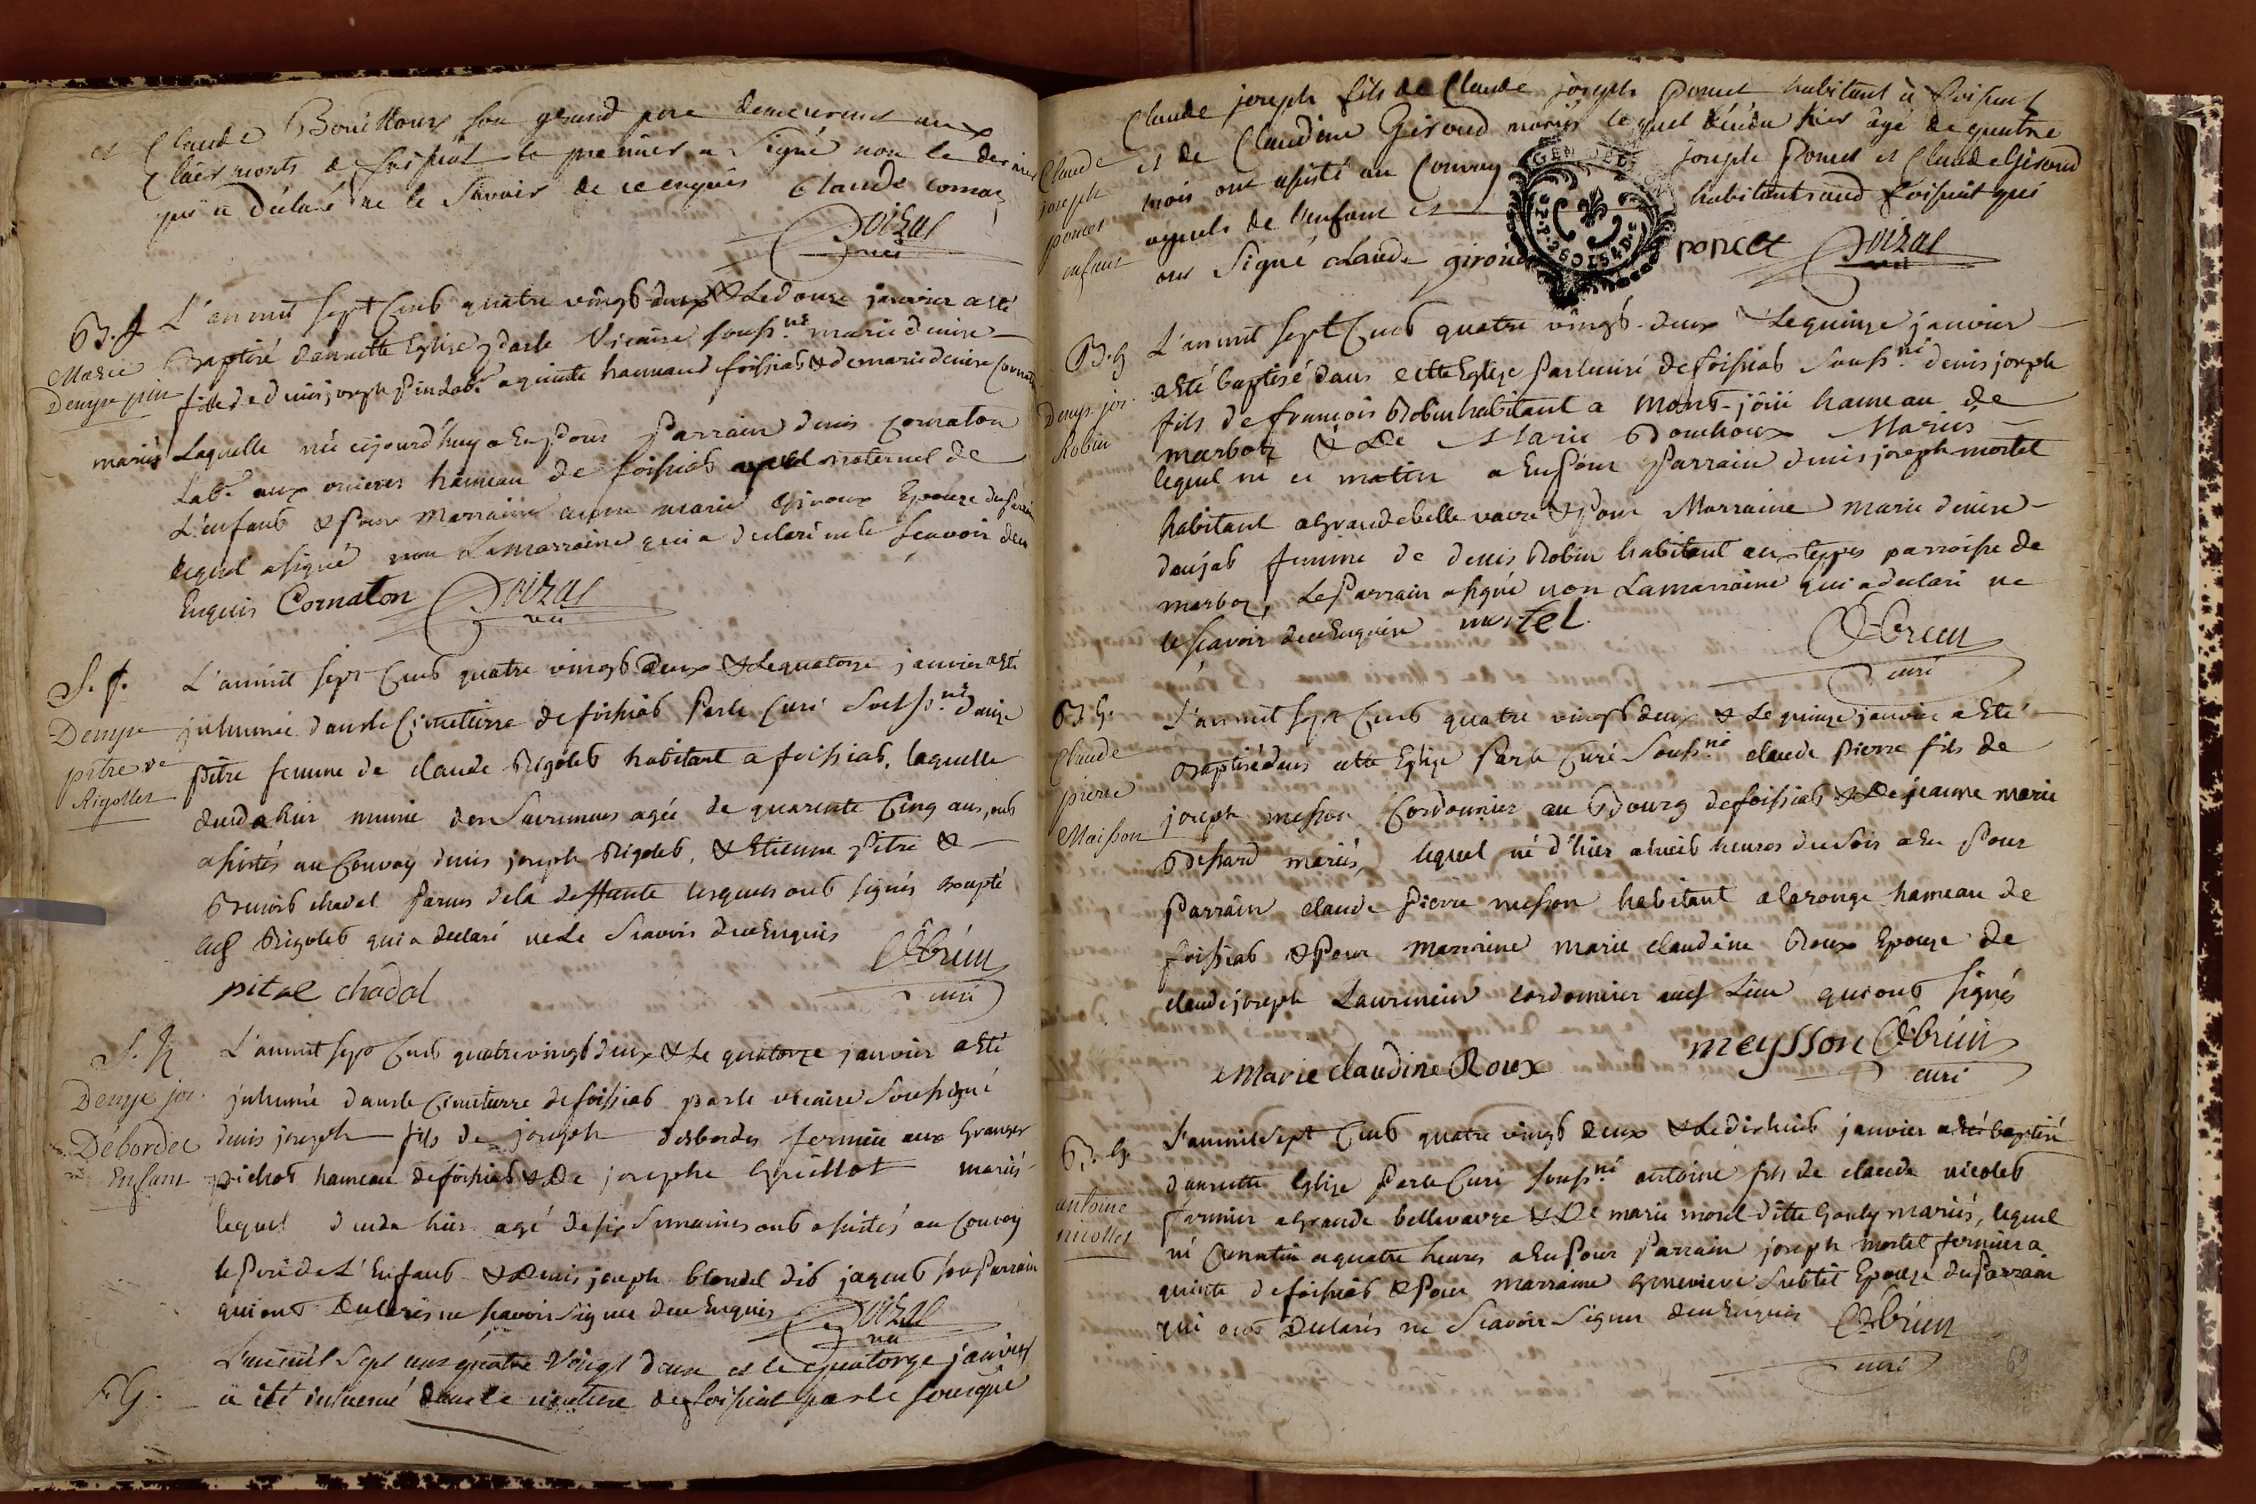 et Claude Bouilloux son grand pere demeurant aux
Claismonts de foissiat le premier a signé non le dernier
qui a déclaré ne le savoir de ce enquis Claude Cornaz
Doizat
vic
B. f
Marie
Denyse pin
L'an mil sept Cens quatre vingt deux & Le douze janvier a été
Baptisé dans cette Eglise par le Vicaire souss.né marie denise
fille de denis joseph Pin lab.r a quinte hameau de foissiat & de marie denise Cornaton
mariés Laquelle née cejourd'huy a eu pour Parrain denis cornaton
Lab.r aux hameau de foissiat ayeul maternel de
L'enfant & Pour Marraine anne marie Epouze du Parrain
lequel a signé non La marraine qui a declaré ne le scavoir de ce
Enquis Cornaton Doizat
vic
S. f.
Denyse
pitre ve
Rigollet
L'an mil sept Cens quatre vingt deux & Le quatorze janvier a été
inhumée dans le Cimetierre de foissiat Par le Curé Souss.né Danise
Pitre femme de claude Rigolet habitant a foissiat, laquelle
decedée hier munie des Sacremens agée de quarante Cinq ans, ont
assistés au Convoy denis joseph Rigolet, & Etienne Pitre &
Benoit chadel Parens de la deffunte lesquels ont signés excepté
led Rigolet qui a declaré ne Le Scavoir de ce Enquis
pitre chadal Cebrun
curé
S. G
Denyse jos.
Debordes
Enfant
L'an mil sept Cens quatre vingt deux & Le quatorze janvier a été
inhumé dans le Cimetierre de foissiat par le vicaire Soussigné
denis joseph fils de joseph desbordes fermier aux Granges
pichot hameau de foissiat & De josephe Guillot mariés
lequel decedé hier agé de six Semaines ont assistés au Convoy
le Pere de L'Enfant & Denis joseph blondel dit jaquet son Parrain
qui ont Declarés ne scavoir signer de ce Enquis Doizat
vic
S. G.
L'an mil sept cens quatre Vingt deux et le quatorze janvier
a été inhumé dans le cimetiere de foissiat par le soussigné
Claude
joseph
poncet
enfant
Claude joseph fils de Claude joseph Poncet habitant à foissiat
et de Claudine Giroud mariés lequel décédé hier âgé de quatre
mois ont assisté au Convoy joseph Poncet et Claude Giroud
ayeuls de l'enfant et habitants aud foissiat qui
ont signé claude giroud poncet Doizat
vic
B. G
Denys jos.
Robin
L'an mil sept Cens quatre vingt deux & Le quinze janvier
a été baptisé dans cette Eglize Par le curé de foissiat Souss.né denis joseph
fils de francois Robin habitant a Mont-jöüi hameau de
marboz & De Marie Bouchoux Mariés
lequel né ce matin a Eu Pour Parrain denis joseph mortel
habitant a Grande belle vavre & Pour Marraine marie denise
daujat femme de denis Robin habitant aux teppes parroisse de
marboz, Le Parrain a signé non La marraine qui a declaré ne
le scavoir de ce Enquise mortel
Cebrun
curé
B. G.
Claude
pierre
Maisson
L'an mil sept Cens quatre vingt deux & Le quinze janvier a été
Baptisé dans cette Eglize Par le Curé Souss.né claude Pierre fils de
joseph messon Cordonnier au Bourg de foissiat & De jeanne marie
Bessard mariés, lequel né d'hier a huit heures du soir a Eu Pour
Parrain claude Pierre messon habitant a laronge hameau de
foissiat & Pour Marraine marie claudine Roux Epouze de
claude joseph Laurencin cordonnier aud Lieu qui ont signés
Marie claudine Roux meysson Cebrun
curé
B. G.
antoine
nicollet
L'an mil Sept Cens quatre vingt deux & Le dix huit janvier a été baptisé
dans cette Eglize Par le Curé souss.né antoine fils de claude nicolet
fermier a Grande bellevavre & De marie morel ditte Gouly mariés, lequel
né Ce matin a quatre heures a Eu Pour Parrain joseph mortel fermier a
quinte de foissiat & Pour marraine Genevieve Subtil Epouze du Parrain
qui ont Declarés ne Scavoir Signer de ce Enquis Cebrun
curé
69